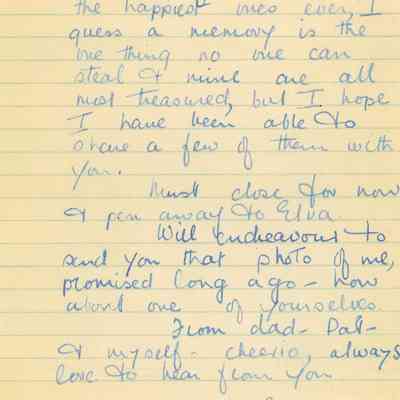 the happiest ones ever, I
guess a memory is the
one thing no one can
steal & mine are all
most treasured, but I hope
I have been able to
share a few of them with
you.
Must close for now
& pen away to Elva.
Will endeavour to
send you that photo of me,
promised long ago - how
about one of yourselves.
From dad - Pat -
& myself - cheerio, always
love to hear from you